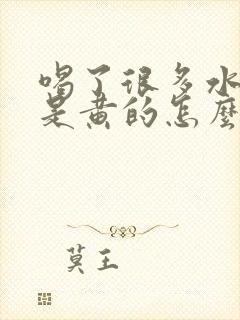 喝了很多水
是黄的怎麽
莫王